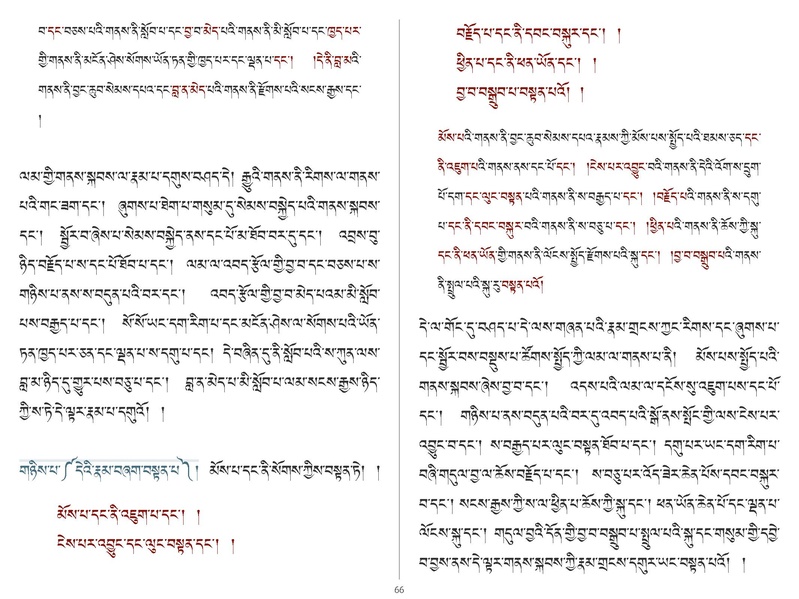 བ་དང་བཅས་པའི་གནས་ནི་སློབ་པ་དང་བྱ་བ་མེད་པའི་གནས་ནི་མི་སློབ་པ་དང་ཁྱད་པར་
གྱི་གནས་ནི་མངོན་ཤེས་སོགས་ཡོན་ཏན་གྱི་ཁྱད་པར་དང་ལྡན་པ་དང་། །དེ་ནི་བླ་མའི་
གནས་ནི་བྱང་ཆུབ་སེམས་དཔའ་དང་བླ་ན་མེད་པའི་གནས་ནི་རྫོགས་པའི་སངས་རྒྱས་དང་
།
ལམ་གྱི་གནས་སྐབས་ལ་རྣམ་པ་དགུས་བཤད་དེ། རྒྱུའི་གནས་ནི་རིགས་ལ་གནས་
པའི་གང་ཟག་དང་། ཞུགས་པ་ཐེག་པ་གསུམ་དུ་སེམས་བསྐྱེད་པའི་གནས་སྐབས་
དང་། སྦྱོར་བ་ཞེས་པ་སེམས་བསྐྱེད་ནས་དང་པོ་མ་ཐོབ་བར་དུ་དང་། འབྲས་བུ་
ཉིད་བརྗོད་པ་ས་དང་པོ་ཐོབ་པ་དང་། ལམ་ལ་འབད་རྩོལ་གྱི་བྱ་བ་དང་བཅས་པ་ས་
གཉིས་པ་ནས་ས་བདུན་པའི་བར་དང་། འབད་རྩོལ་གྱི་བྱ་བ་མེད་པའམ་མི་སློབ་
པས་བརྒྱད་པ་དང་། སོ་སོ་ཡང་དག་རིག་པ་དང་མངོན་ཤེས་ལ་སོགས་པའི་ཡོན་
ཏན་ཁྱད་པར་ཅན་དང་ལྡན་པ་ས་དགུ་པ་དང་། དེ་བཞིན་དུ་ནི་སློབ་པའི་ས་ཀུན་ལས་
བླ་མ་ཉིད་དུ་གྱུར་པས་བཅུ་པ་དང་། བླ་ན་མེད་པ་མི་སློབ་པ་ལམ་སངས་རྒྱས་ཉིད་
ཀྱི་ས་ཏེ་དེ་ལྟར་རྣམ་པ་དགུའོ། །
གཉིས་པ་༼ དེའི་རྣམ་བཞག་བསྟན་པ་༽། མོས་པ་དང་ནི་སོགས་ཀྱིས་བསྟན་ཏེ། །
མོས་པ་དང་ནི་འཇུག་པ་དང་། །
ངེས་པར་འབྱུང་དང་ལུང་བསྟན་དང་། །
བརྗོད་པ་དང་ནི་དབང་བསྐུར་དང་། །
ཕྱིན་པ་དང་ནི་ཕན་ཡོན་དང་། །
བྱ་བ་བསྒྲུབ་པ་བསྟན་པའོ། །
མོས་པའི་གནས་ནི་བྱང་ཆུབ་སེམས་དཔའ་རྣམས་ཀྱི་མོས་པས་སྤྱོད་པའི་ཐམས་ཅད་དང་
ནི་འཇུག་པའི་གནས་ནས་དང་པོ་དང་། །ངེས་པར་འབྱུང་བའི་གནས་ནི་དེའི་འོག་ས་དྲུག་
པོ་དག་དང་ལུང་བསྟན་པའི་གནས་ནི་ས་བརྒྱད་པ་དང་། །བརྗོད་པའི་གནས་ནི་ས་དགུ་
པ་དང་ནི་དབང་བསྐུར་བའི་གནས་ནི་ས་བཅུ་པ་དང་། །ཕྱིན་པའི་གནས་ནི་ཆོས་ཀྱི་སྐུ་
དང་ནི་ཕན་ཡོན་གྱི་གནས་ནི་ལོངས་སྤྱོད་རྫོགས་པའི་སྐུ་དང་། །བྱ་བ་བསྒྲུབ་པའི་གནས་
ནི་སྤྲུལ་པའི་སྐུ་རུ་བསྟན་པའོ།
དེ་ལ་གོང་དུ་བཤད་པ་དེ་ལས་གཞན་པའི་རྣམ་གྲངས་ཀྱང་རིགས་དང་ཞུགས་པ་
དང་སྦྱོར་བས་བསྡུས་པ་ཚོགས་སྤྱོད་ཀྱི་ལམ་ལ་གནས་པ་ནི། མོས་པས་སྤྱོད་པའི་
གནས་སྐབས་ཞེས་བྱ་བ་དང་། འདས་པའི་ལམ་ལ་དངོས་སུ་འཇུག་པས་དང་པོ་
དང་། གཉིས་པ་ནས་བདུན་པའི་བར་དུ་འབད་པའི་སྒོ་ནས་སྤོང་གྱི་ལས་ངེས་པར་
འབྱུང་བ་དང་། ས་བརྒྱད་པར་ལུང་བསྟན་ཐོབ་པ་དང་། དགུ་པར་ཡང་དག་རིག་པ་
བཞི་གདུལ་བྱ་ལ་ཆོས་བརྗོད་པ་དང་། ས་བཅུ་པར་འོད་ཟེར་ཆེན་པོས་དབང་བསྐུར་
བ་དང་། སངས་རྒྱས་ཀྱི་ས་ལ་ཕྱིན་པ་ཆོས་ཀྱི་སྐུ་དང་། ཕན་ཡོན་ཆེན་པོ་དང་ལྡན་པ་
ལོངས་སྐུ་དང་། གདུལ་བྱའི་དོན་གྱི་བྱ་བ་བསྒྲུབ་པ་སྤྲུལ་པའི་སྐུ་དང་གསུམ་གྱི་དབྱེ་
བ་བྱས་ནས་དེ་ལྟར་གནས་སྐབས་ཀྱི་རྣམ་གྲངས་དགུར་ཡང་བསྟན་པའོ། །
66